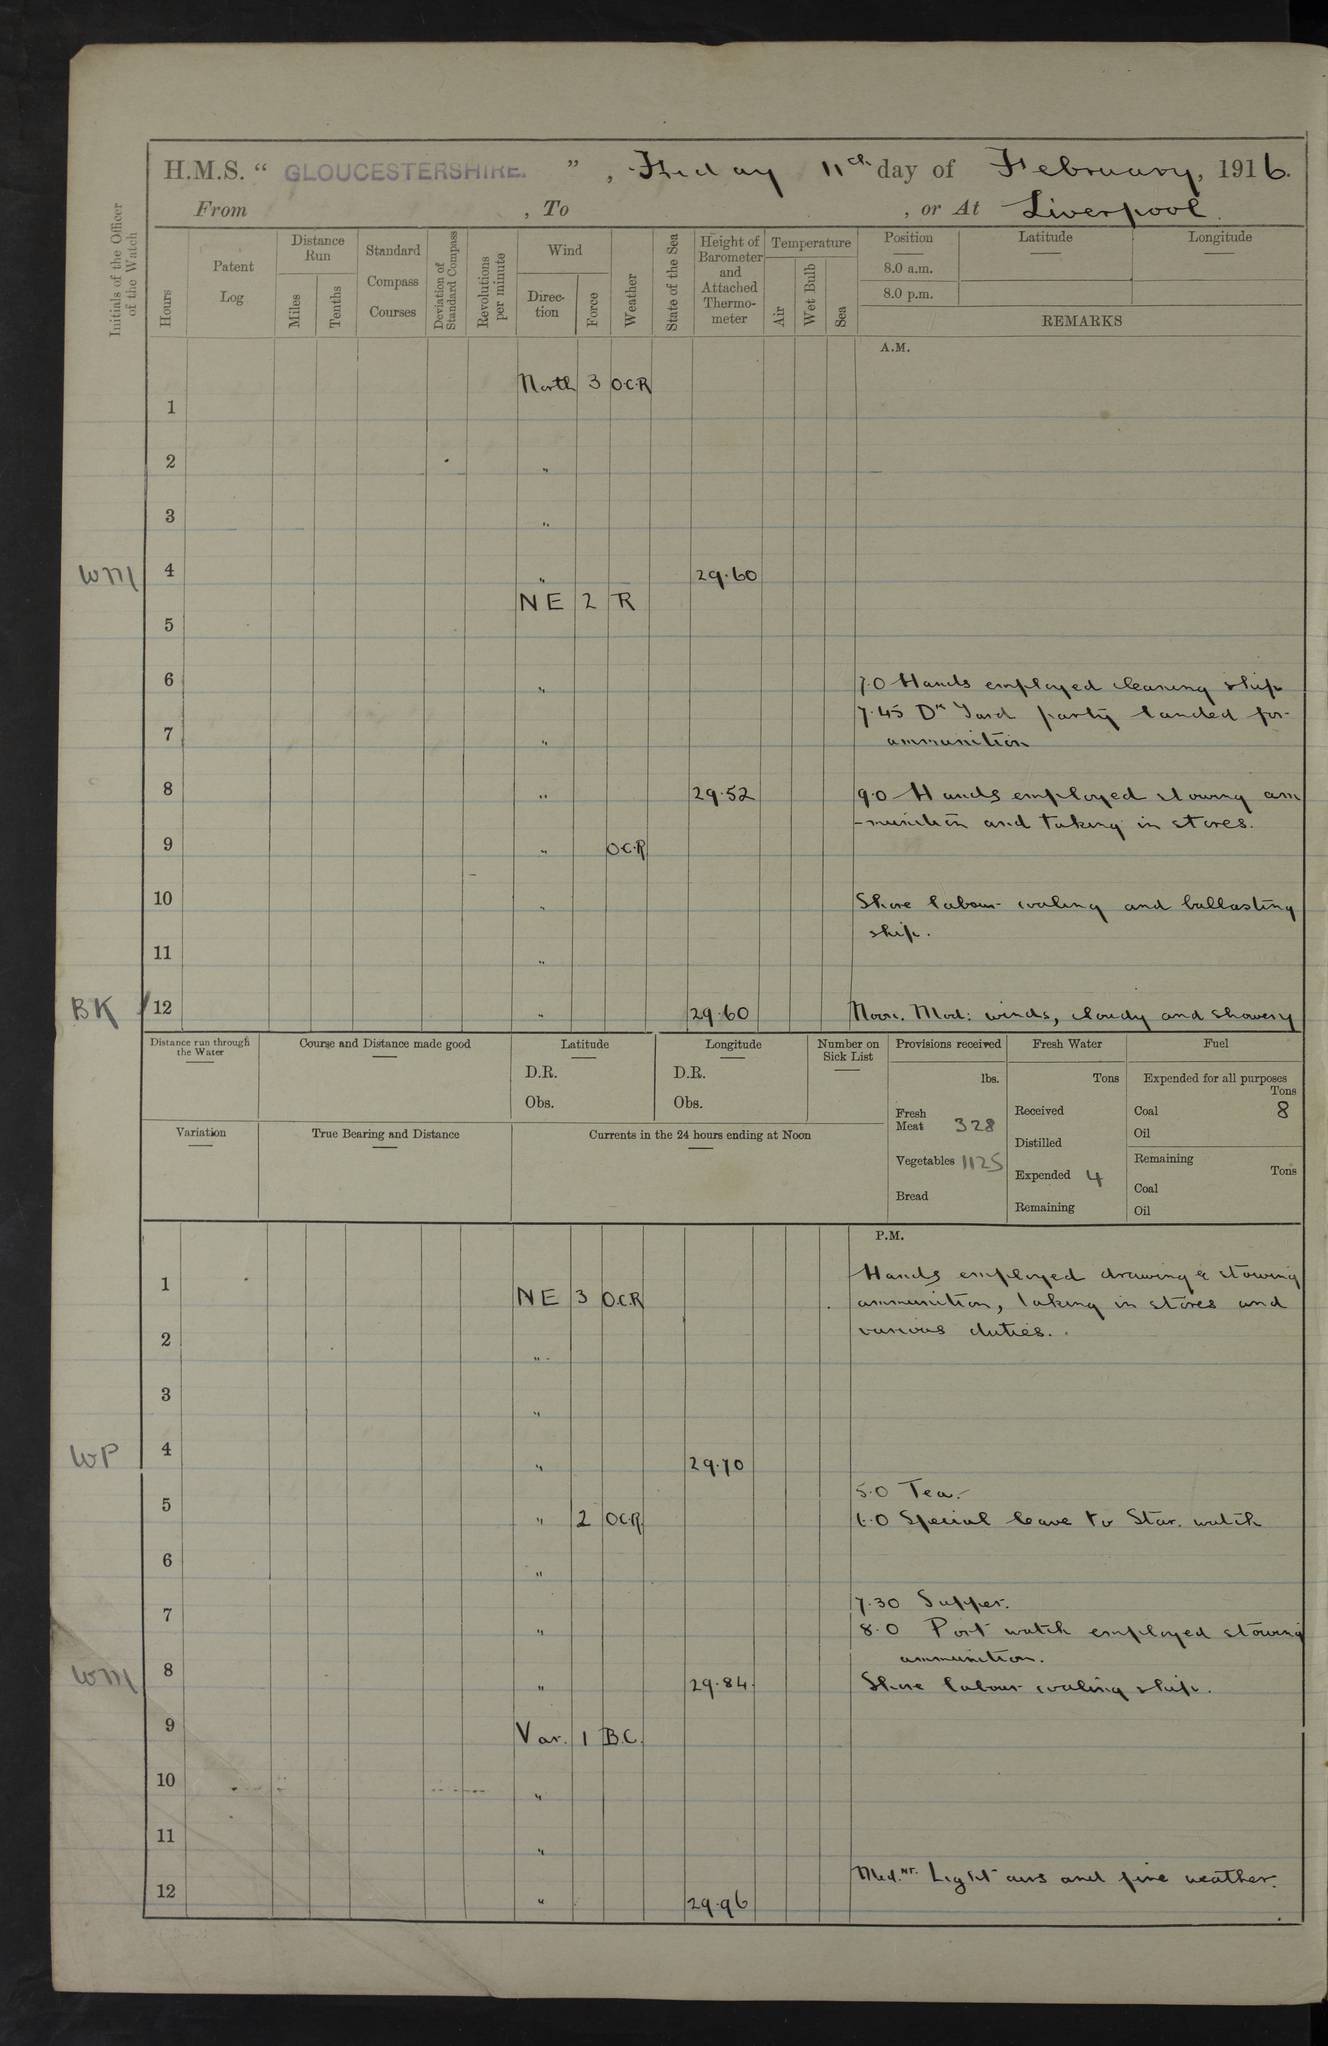 H.M.S. “ GLOUCESTERSHIRE. ” , Friday 11th day of February, 1916.
From , To , or At Liverpool.
Initials of the Officer of the Watch
Hours
Patent Log
Distance Run
Miles
Tenths
Standard Compass Courses
Deviation of Standard Compass
Revolutions per minute
Wind
Direction
Force
Weather
State of the Sea
Height of Barometer and Attached Thermometer
Temperature
Air
Wet Bulb
Sea
Position
8.0 a.m.
8.0 p.m.
Latitude
Longitude
REMARKS
A.M.
North 3 O.C.R
1
2 "
3 "
WM 4 " 29.60
NE 2 R
5
6 " 7.0 Hands employed cleaning ship
7.45 Dk Yard party landed for
7 " ammunition
8 " 29.52 9.0 Hands employed stowing am
-munition and taking in stores.
9 " O.C.R
10 " Shore labour coaling and ballasting
ship.
11 "
BK 12 " 29.60 Noon. Mod: winds, cloudy and showery
Distance run through the Water
Course and Distance made good
Latitude
D.R.
Obs.
Longitude
D.R.
Obs.
Number on Sick List
Provisions received
lbs.
Fresh Meat 328
Vegetables 1125
Bread
Fresh Water
Tons
Received
Distilled
Expended 4
Remaining
Fuel
Expended for all purposes
Tons
Coal 8
Oil
Remaining
Tons
Coal
Oil
Variation
True Bearing and Distance
Currents in the 24 hours ending at Noon
P.M.
Hands employed drawing & stowing
1 NE 3 O.C.R ammunition, taking in stores and
various duties.
2 "
3 "
WP 4 " 29.70
5.0 Tea.
5 " 2 O.C.R. 6.0 Special leave to Star. watch
6 "
7.30 Supper.
7 " 8.0 Port watch employed stowing
ammunition.
WM 8 " 29.84. Shore labour coaling ship.
9 Var. 1 B.C.
10 "
11 "
Mid.NT. Light airs and fine weather.
12 " 29.96